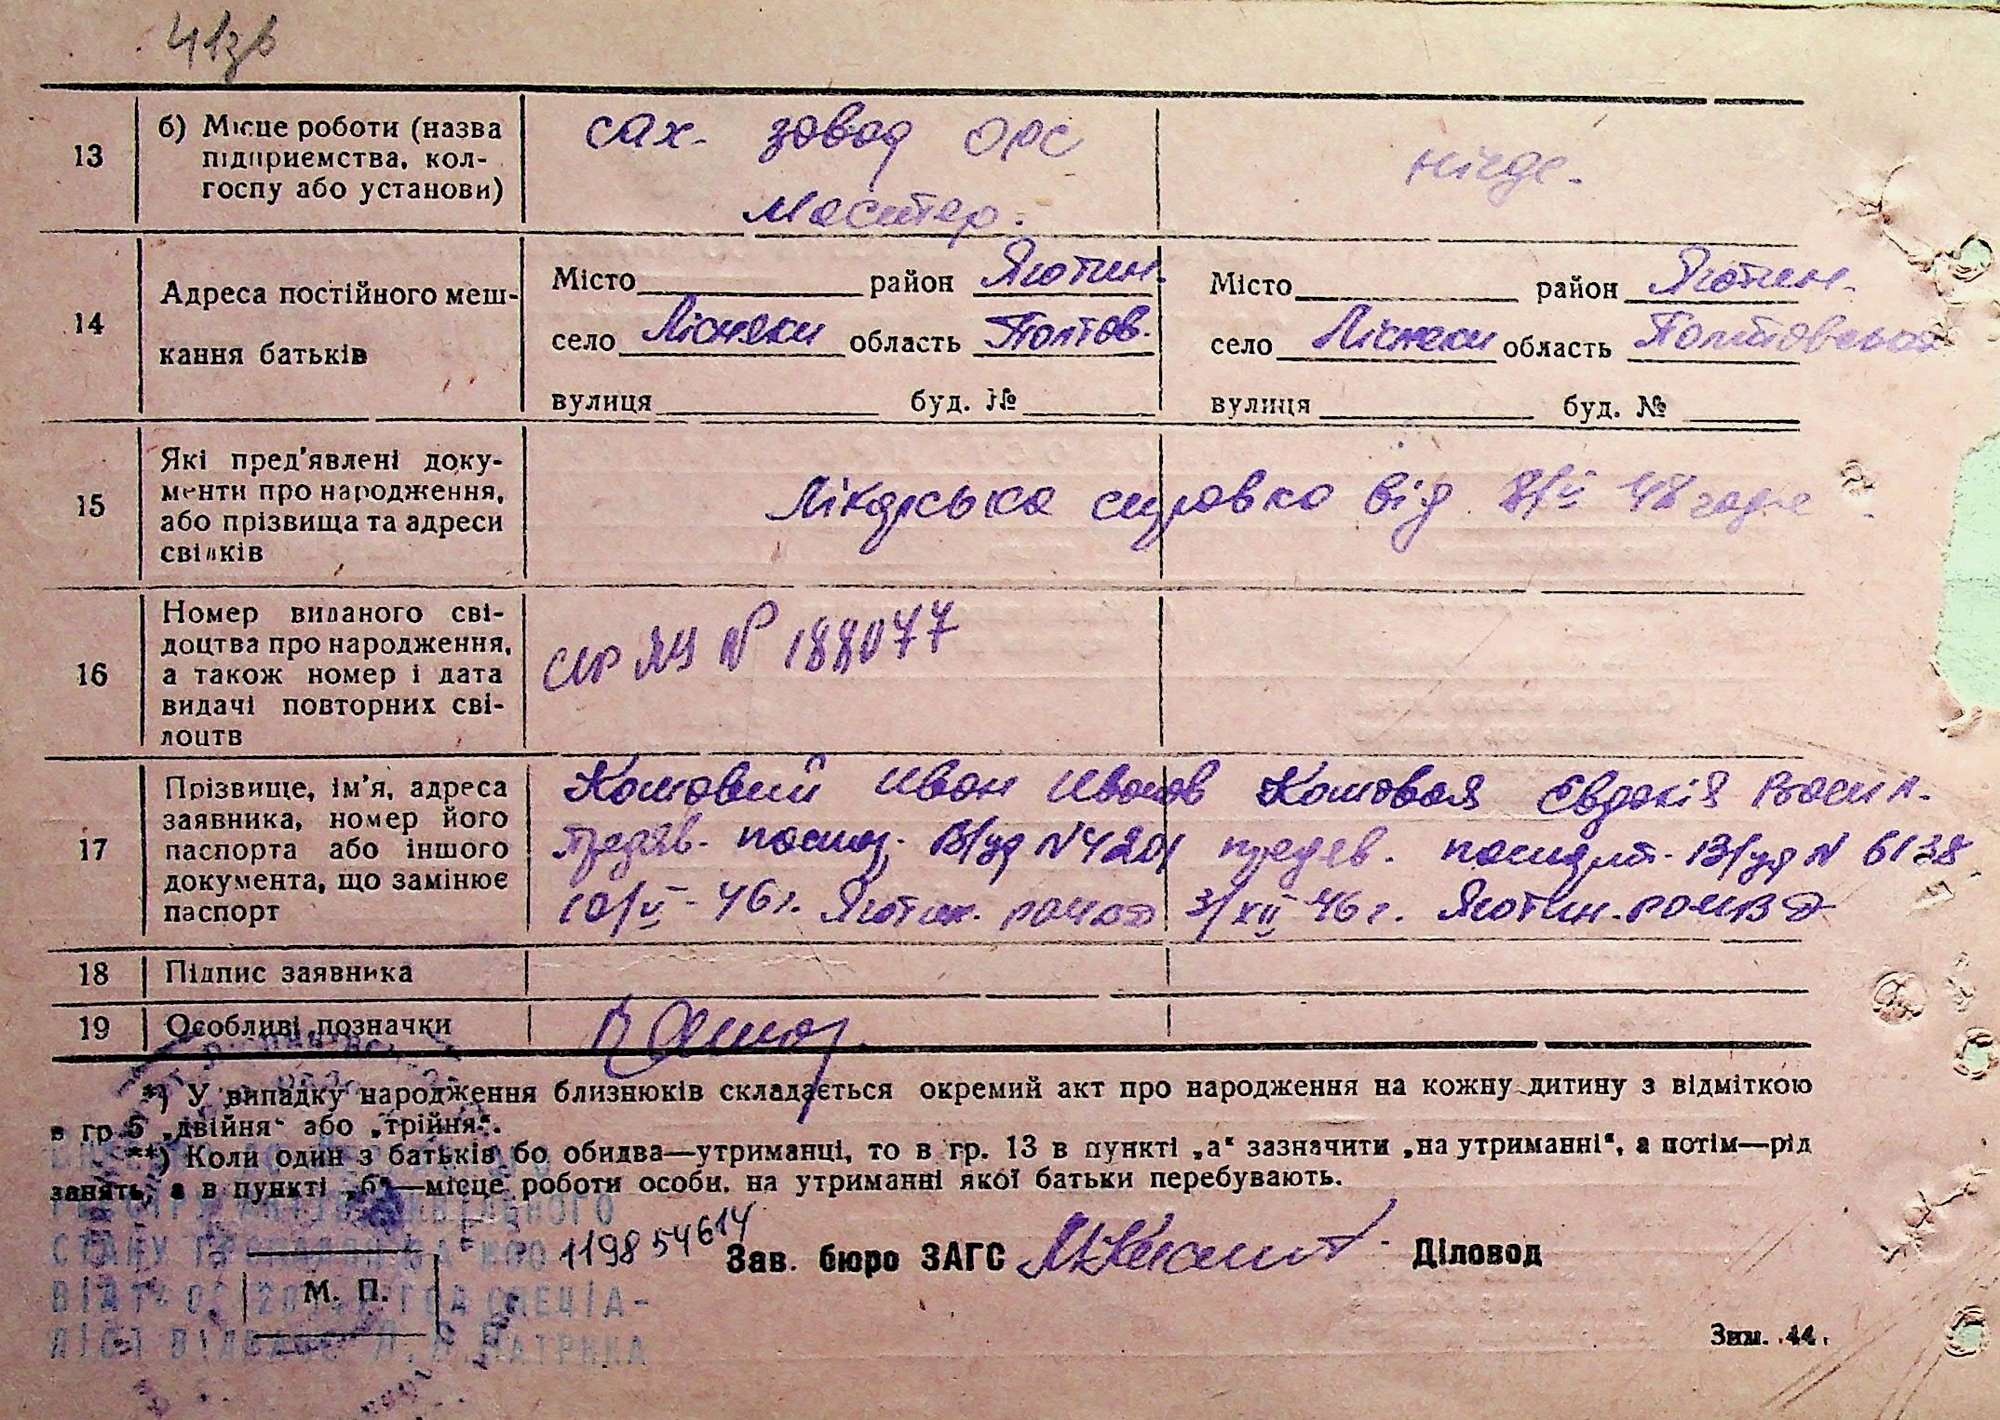 41зв
13
б) Місце роботи (назва
підприємства, кол-
госпу або установи)
сах. завод ОРС
мастер.
нігде.
14
Адреса постійного меш-
кання батьків
Місто район Яготин.
село Лісняки область Полтов.
вулиця буд. №
Місто район Яготин.
село Лісняки область Полтовська
вулиця буд. №
15
Які пред'явлені доку-
менти про народження,
або прізвища та адреси
свідків
Лікарська справка від 8/VI 48
16
Номер виданого сві-
доцтва про народження,
а також номер і дата
видачі повторних сві-
доцтв
№ 188077
17
Прізвище, ім'я, адреса
заявника, номер його
паспорта або іншого
документа, що замінює
паспорт
Кошовий Иван Иванов
предяв. 1В/уд № 4201
10/V - 46 г. Яготин.
Кошовая Євдокія Васил.
предяв. 1В/уд № 6138
3/XII 46 г. Яготин. РОМВД
18
Підпис заявника
19
Особливі позначки
*) У випадку народження близнюків складається окремий акт про народження на кожну дитину з відміткою
в гр 5 „двійня“ або „трійня“.
**) Коли один з батьків бо обидва—утриманці, то в гр. 13 в пункті „а“ зазначити „на утриманні“, а потім—рід
занять, а в пункті „б“—місце роботи особи, на утриманні якої батьки перебувають.
119854614
Зав. бюро ЗАГС
Діловод
М. П.
Зим. 44.